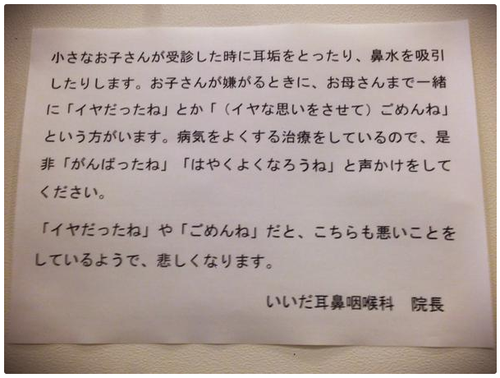 小さなお子さんが受診した時に耳垢をとったり、鼻水を吸引
したりします。お子さんが嫌がるときに、お母さんまで一緒
に「イヤだったね」とか「（イヤな思いをさせて）ごめんね」
という方がいます。病気をよくする治療をしているので、是
非「がんばったね」「はやくよくなろうね」と声かけをして
ください。
「イヤだったね」や「ごめんね」だと、こちらも悪いことを
しているようで、悲しくなります。
いいだ耳鼻咽喉科　院長